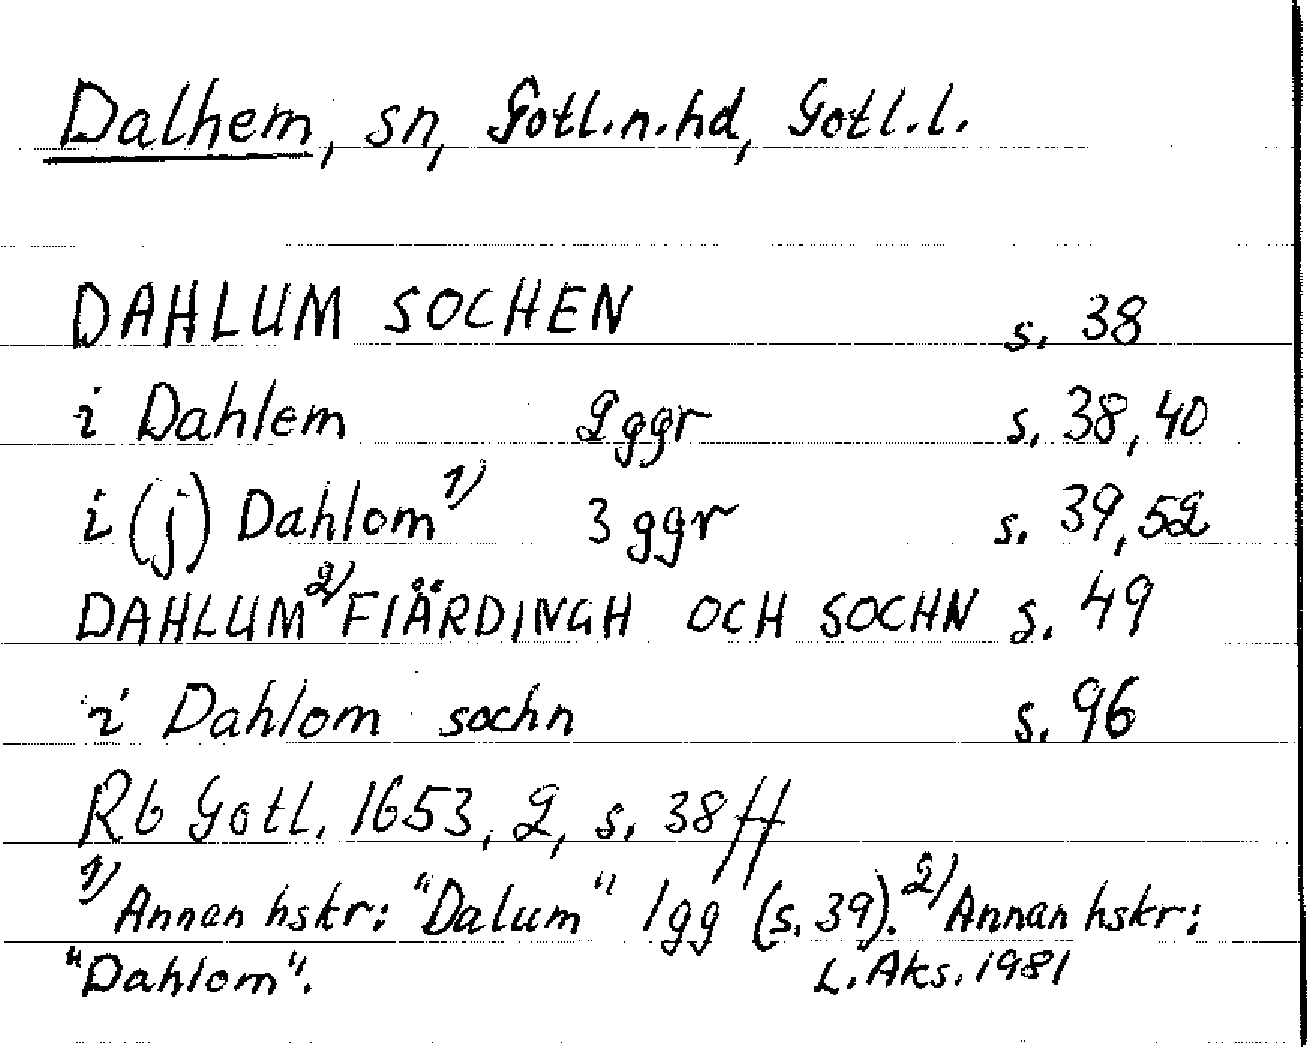 Dalhem, sn, Gotl.n.hd, Gotl.l.
DAHLUM SOCHEN s. 38
i Dahlem 2 ggr s. 38, 40
i (j) Dahlom 1) 3 ggr s. 39, 52
DAHLUM 2) FIÄRDINGH OCH SOCHN s. 49
i Dahlom sochn s. 96
Rb Gotl. 1653, 2, s. 38 ff
1) Annan hskr: "Dalum" 1 gg (s. 39). 2) Annan hskr:
"Dahlom". L. Aks. 1981